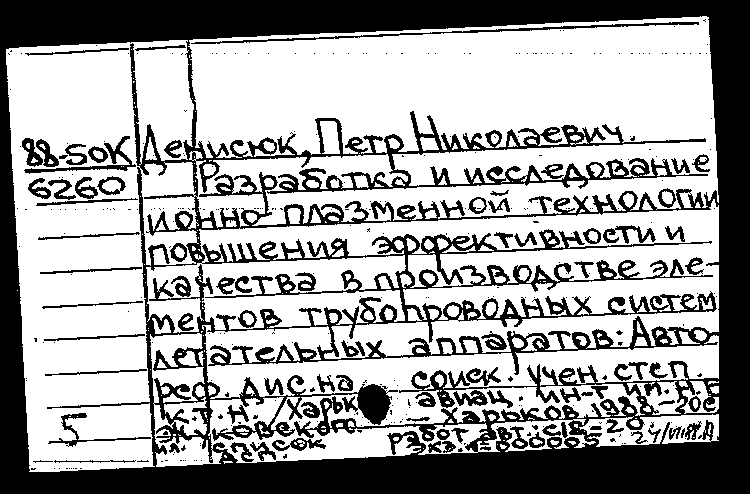 88-50К Денисюк, Петр Николаевич.
6260 Разработка и исследование
ионно-плазменной технологии
повышения эффективности и
качества в производстве эле-
ментов трубопроводных систем
летательных аппаратов: Авто-
реф. дис. на соиск. учен. степ.
к.т.н. /Харьк авиац. ин-т им. Н.Е
Жуковского. - Харьков, 1988.-20с
5
ил. список работ авт.: с.18-20
ДСП. экз. №000005. 24/VI